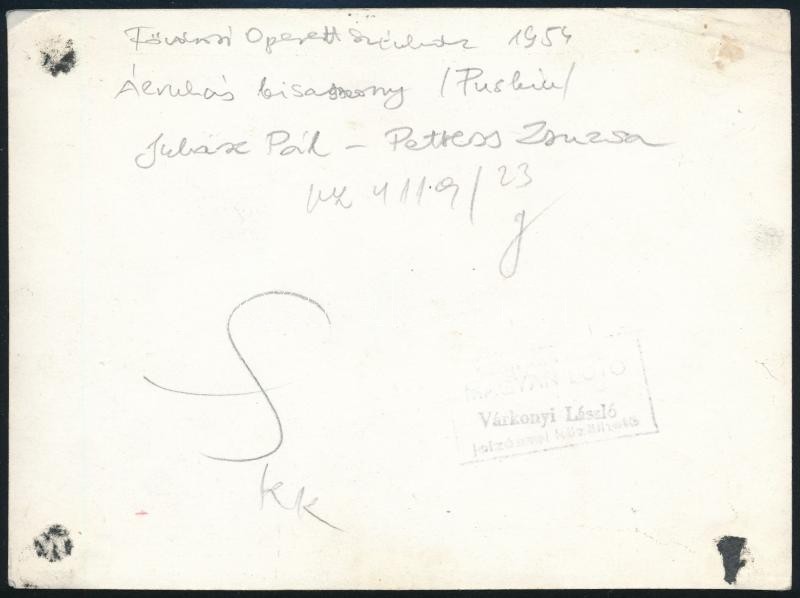 Fővárosi Operett Szinház 1954
Álruhás kisasszony /Puskin/
Juhász Pál - Petress Zsuzsa
VZ 4119/23
g
KK
MAGYAR FOTO
Várkonyi László
jelzéssel közölhető